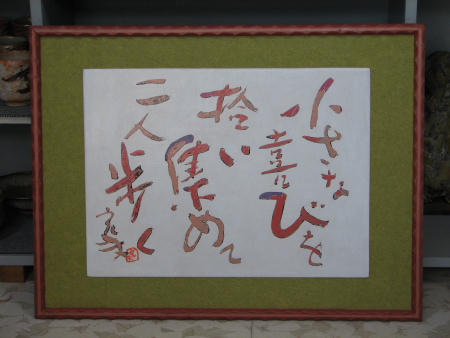 小さな
喜びを
拾い
集めて
二人歩く